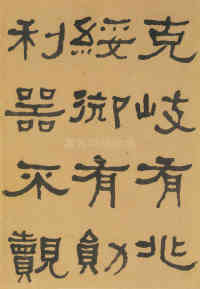 克岐有兆
綏御有勛
利器不覿